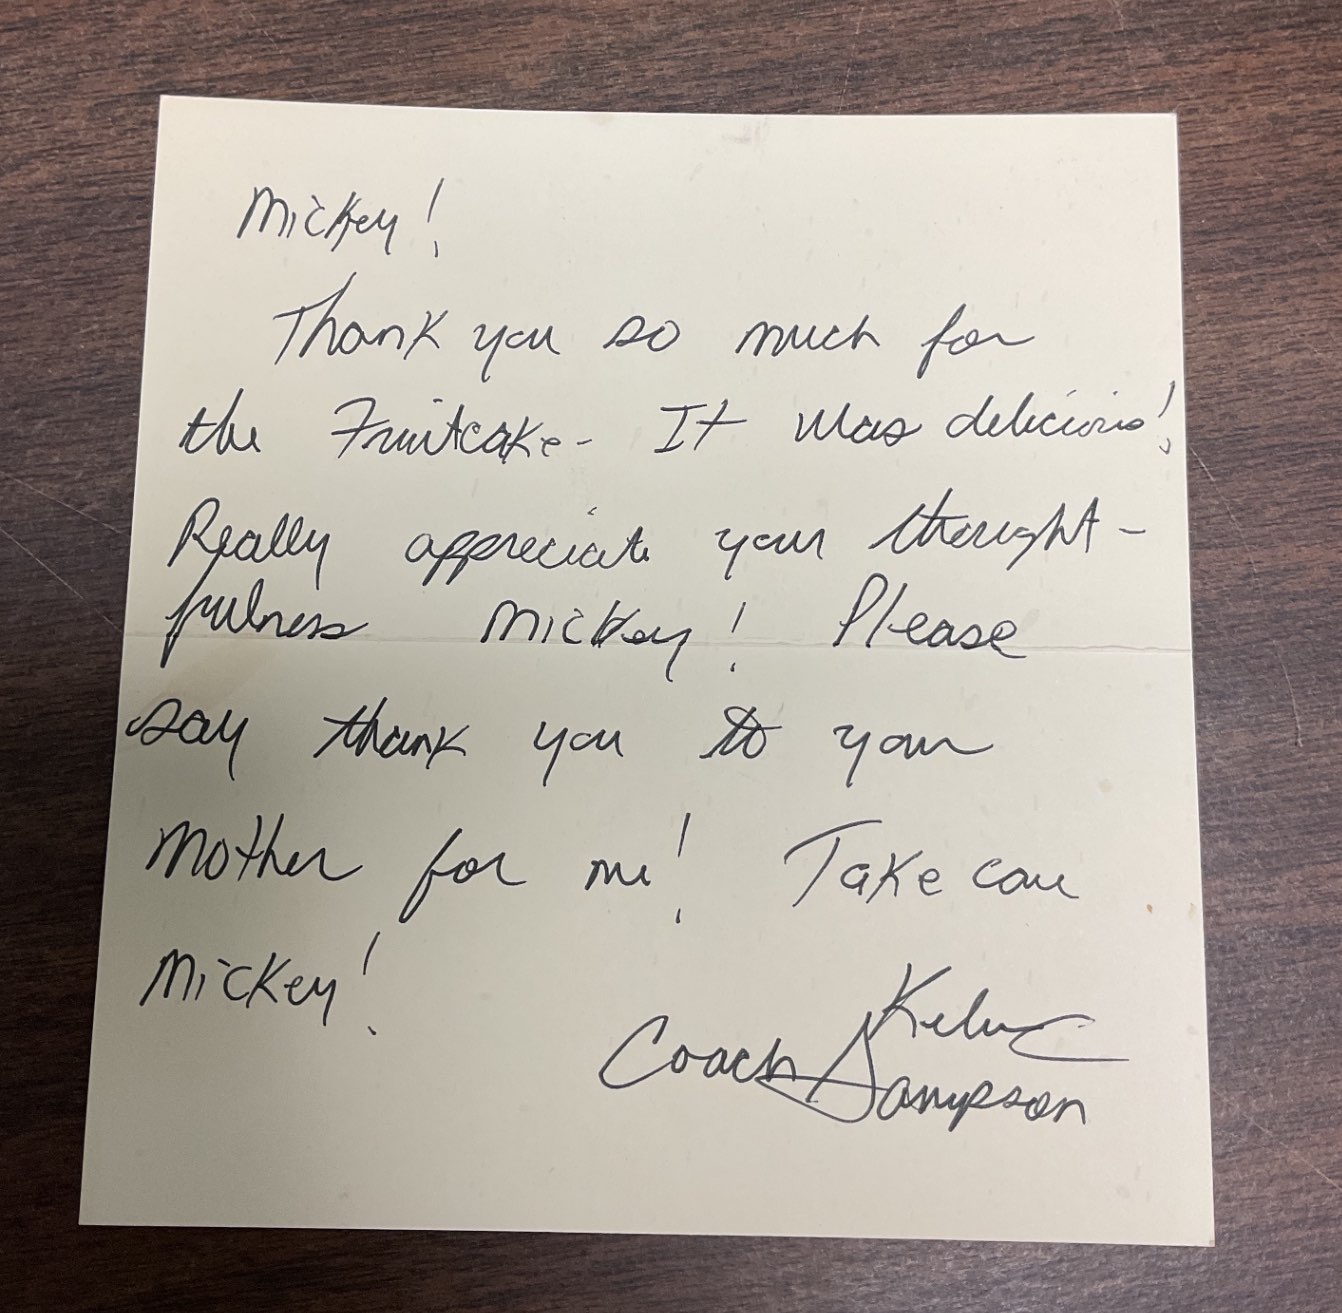 Mickey!
Thank you so much for
the Fruitcake- It was delicious!
Really appreciate your thought-
fulness Mickey! Please
say thank you to your
Mother for me! Take care
Mickey!
Kelvin
Coach Sampson